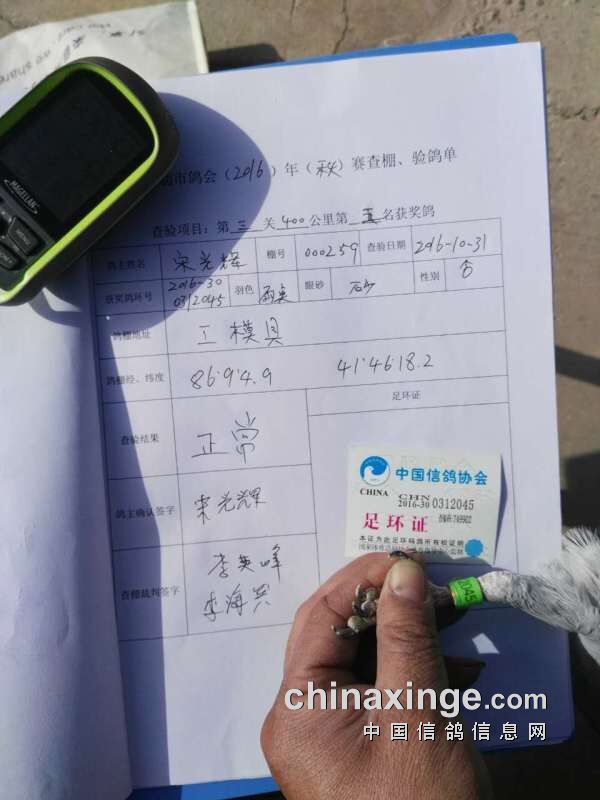 we share
MAGELLAN
MENU
市鸽会（2016）年（秋）赛查棚、验鸽单
查验项目：第三关400公里第五名获奖鸽
鸽主姓名 宋光辉 棚号 000259 查验日期 2016-10-31
获奖鸽环号 2016-30 0312045 羽色 雨点 眼砂 石少 性别
鸽棚地址 工模具
鸽棚经、纬度 86°9'4.9 41°46'18.2
查验结果 正常 足环证
鸽主确认签字 宋光辉
查棚裁判签字 李英峰
李海兴
中国信鸽协会
CHINA CHN
2016-30 0312045
足环证
本证为此足环码鸽所有权证明
2045
chinaxinge.com
中国信鸽信息网